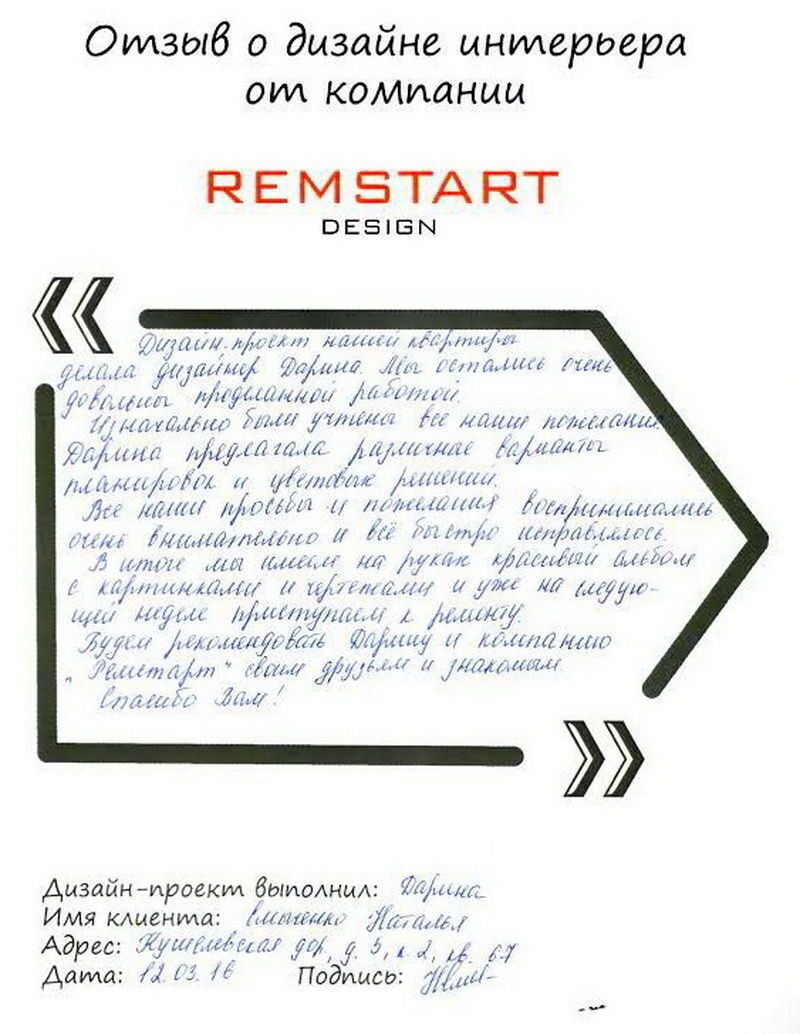 Отзыв о дизайне интерьера
от компании
REMSTART
DESIGN
Дизайн-проект нашей квартиры
делала дизайнер Дарина. Мы остались очень
довольны проделанной работой.
Изначально были учтены все наши пожелания.
Дарина предлагала различные варианты
планировок и цветовых решений.
Все наши просьбы и пожелания воспринимались
очень внимательно и всё быстро исправлялось.
В итоге мы имеем на руках красивый альбом
с картинками и чертежами и уже на следую-
щей неделе приступаем к ремонту.
Будем рекомендовать Дарину и компанию
"Ремстарт" своим друзьям и знакомым.
Спасибо Вам!
Дизайн-проект выполнил: Дарина
Имя клиента: Наталья
Адрес: Кушелевская дор, д. 5, к. 2, кв. 67
Дата: 12.03.16 Подпись: